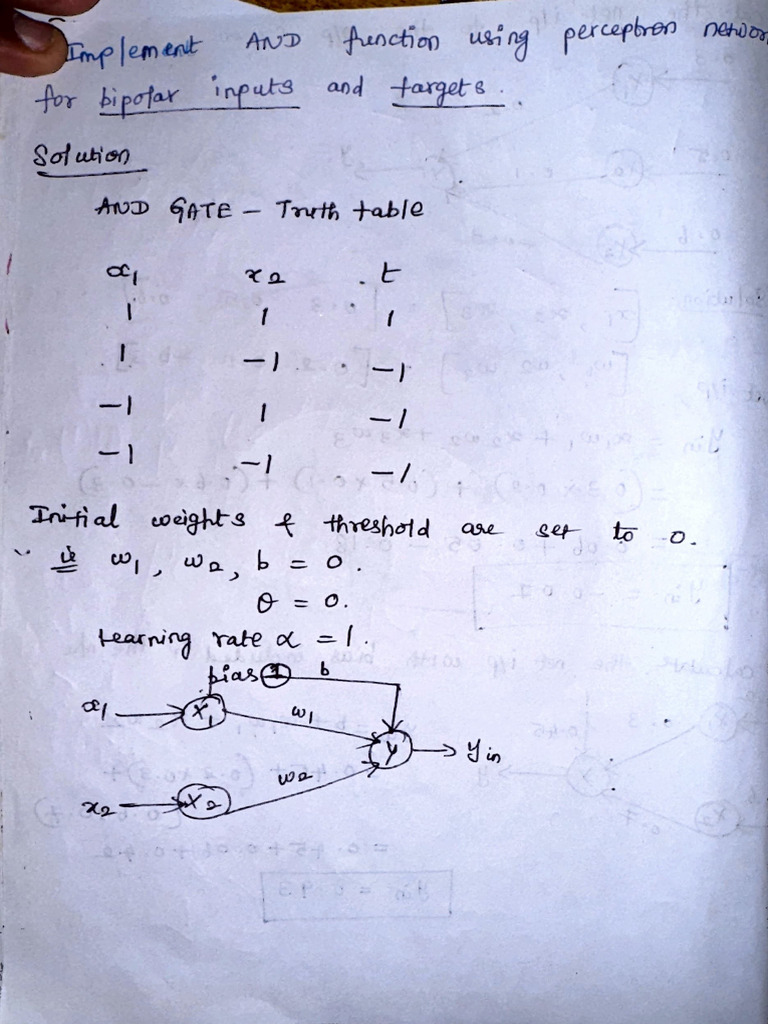 Implement AND function using perceptron networ
for bipolar inputs and targets.
Solution
AND GATE - Truth table
x1 x2 t
1 1 1
1 -1 -1
-1 1 -1
-1 -1 -1
Initial weights & threshold are set to 0.
ie w1, w2, b = 0.
θ = 0.
Learning rate α = 1.
bias 1 b
x1 X1 w1
Y Yin
w2
x2 X2